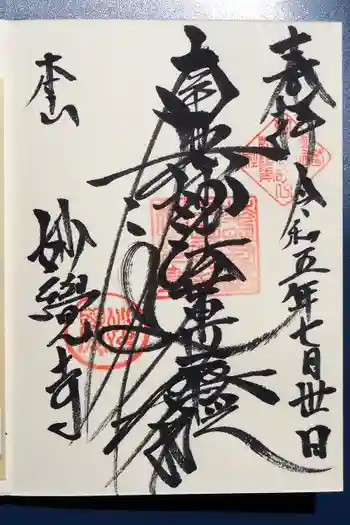 奉拝
令和五年七月卅日
南無妙法蓮華経
本山
妙覺寺